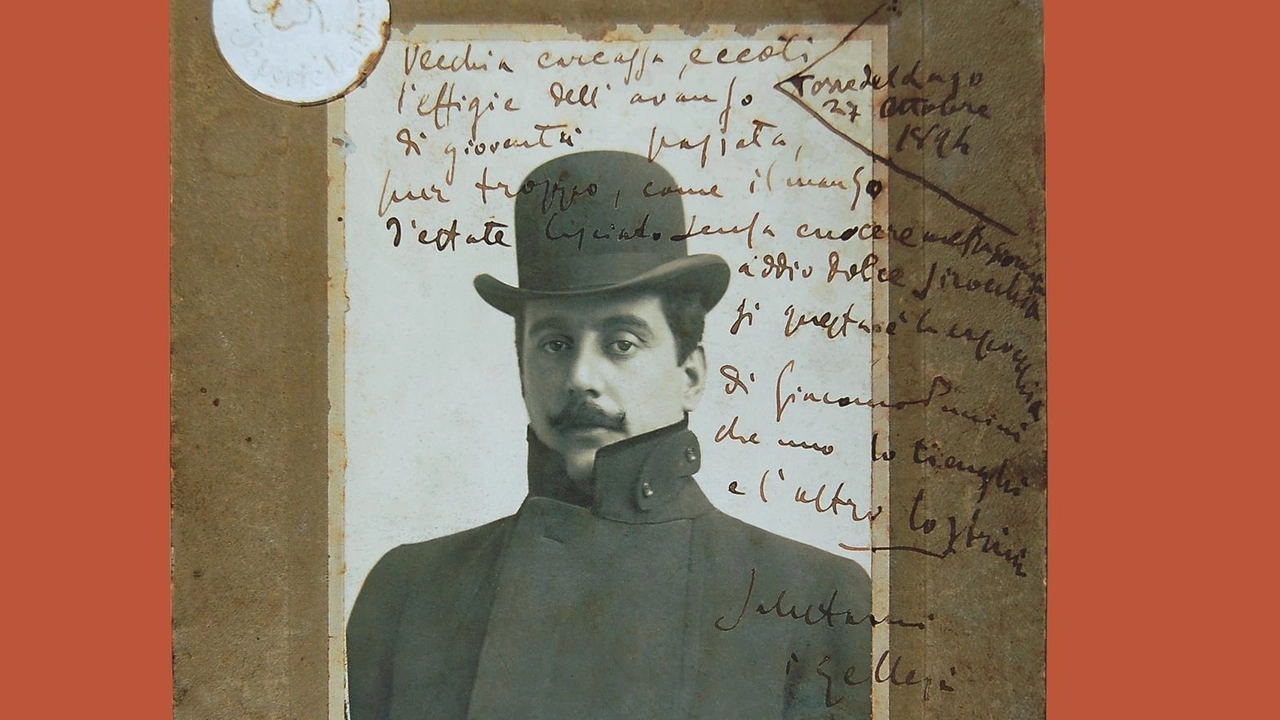 Vecchia carcassa, eccoti
l'effigie dell' avanzo
di gioventù passata,
pur troppo, come il manzo
d'estate lasciato senza cuocere
addio dolce sirocchia
si questa è la
di Giacomo Puccini
che uno lo tienghi
e l'altro lo strini
Salutami
i
Torre del Lago
27 ottobre
1894